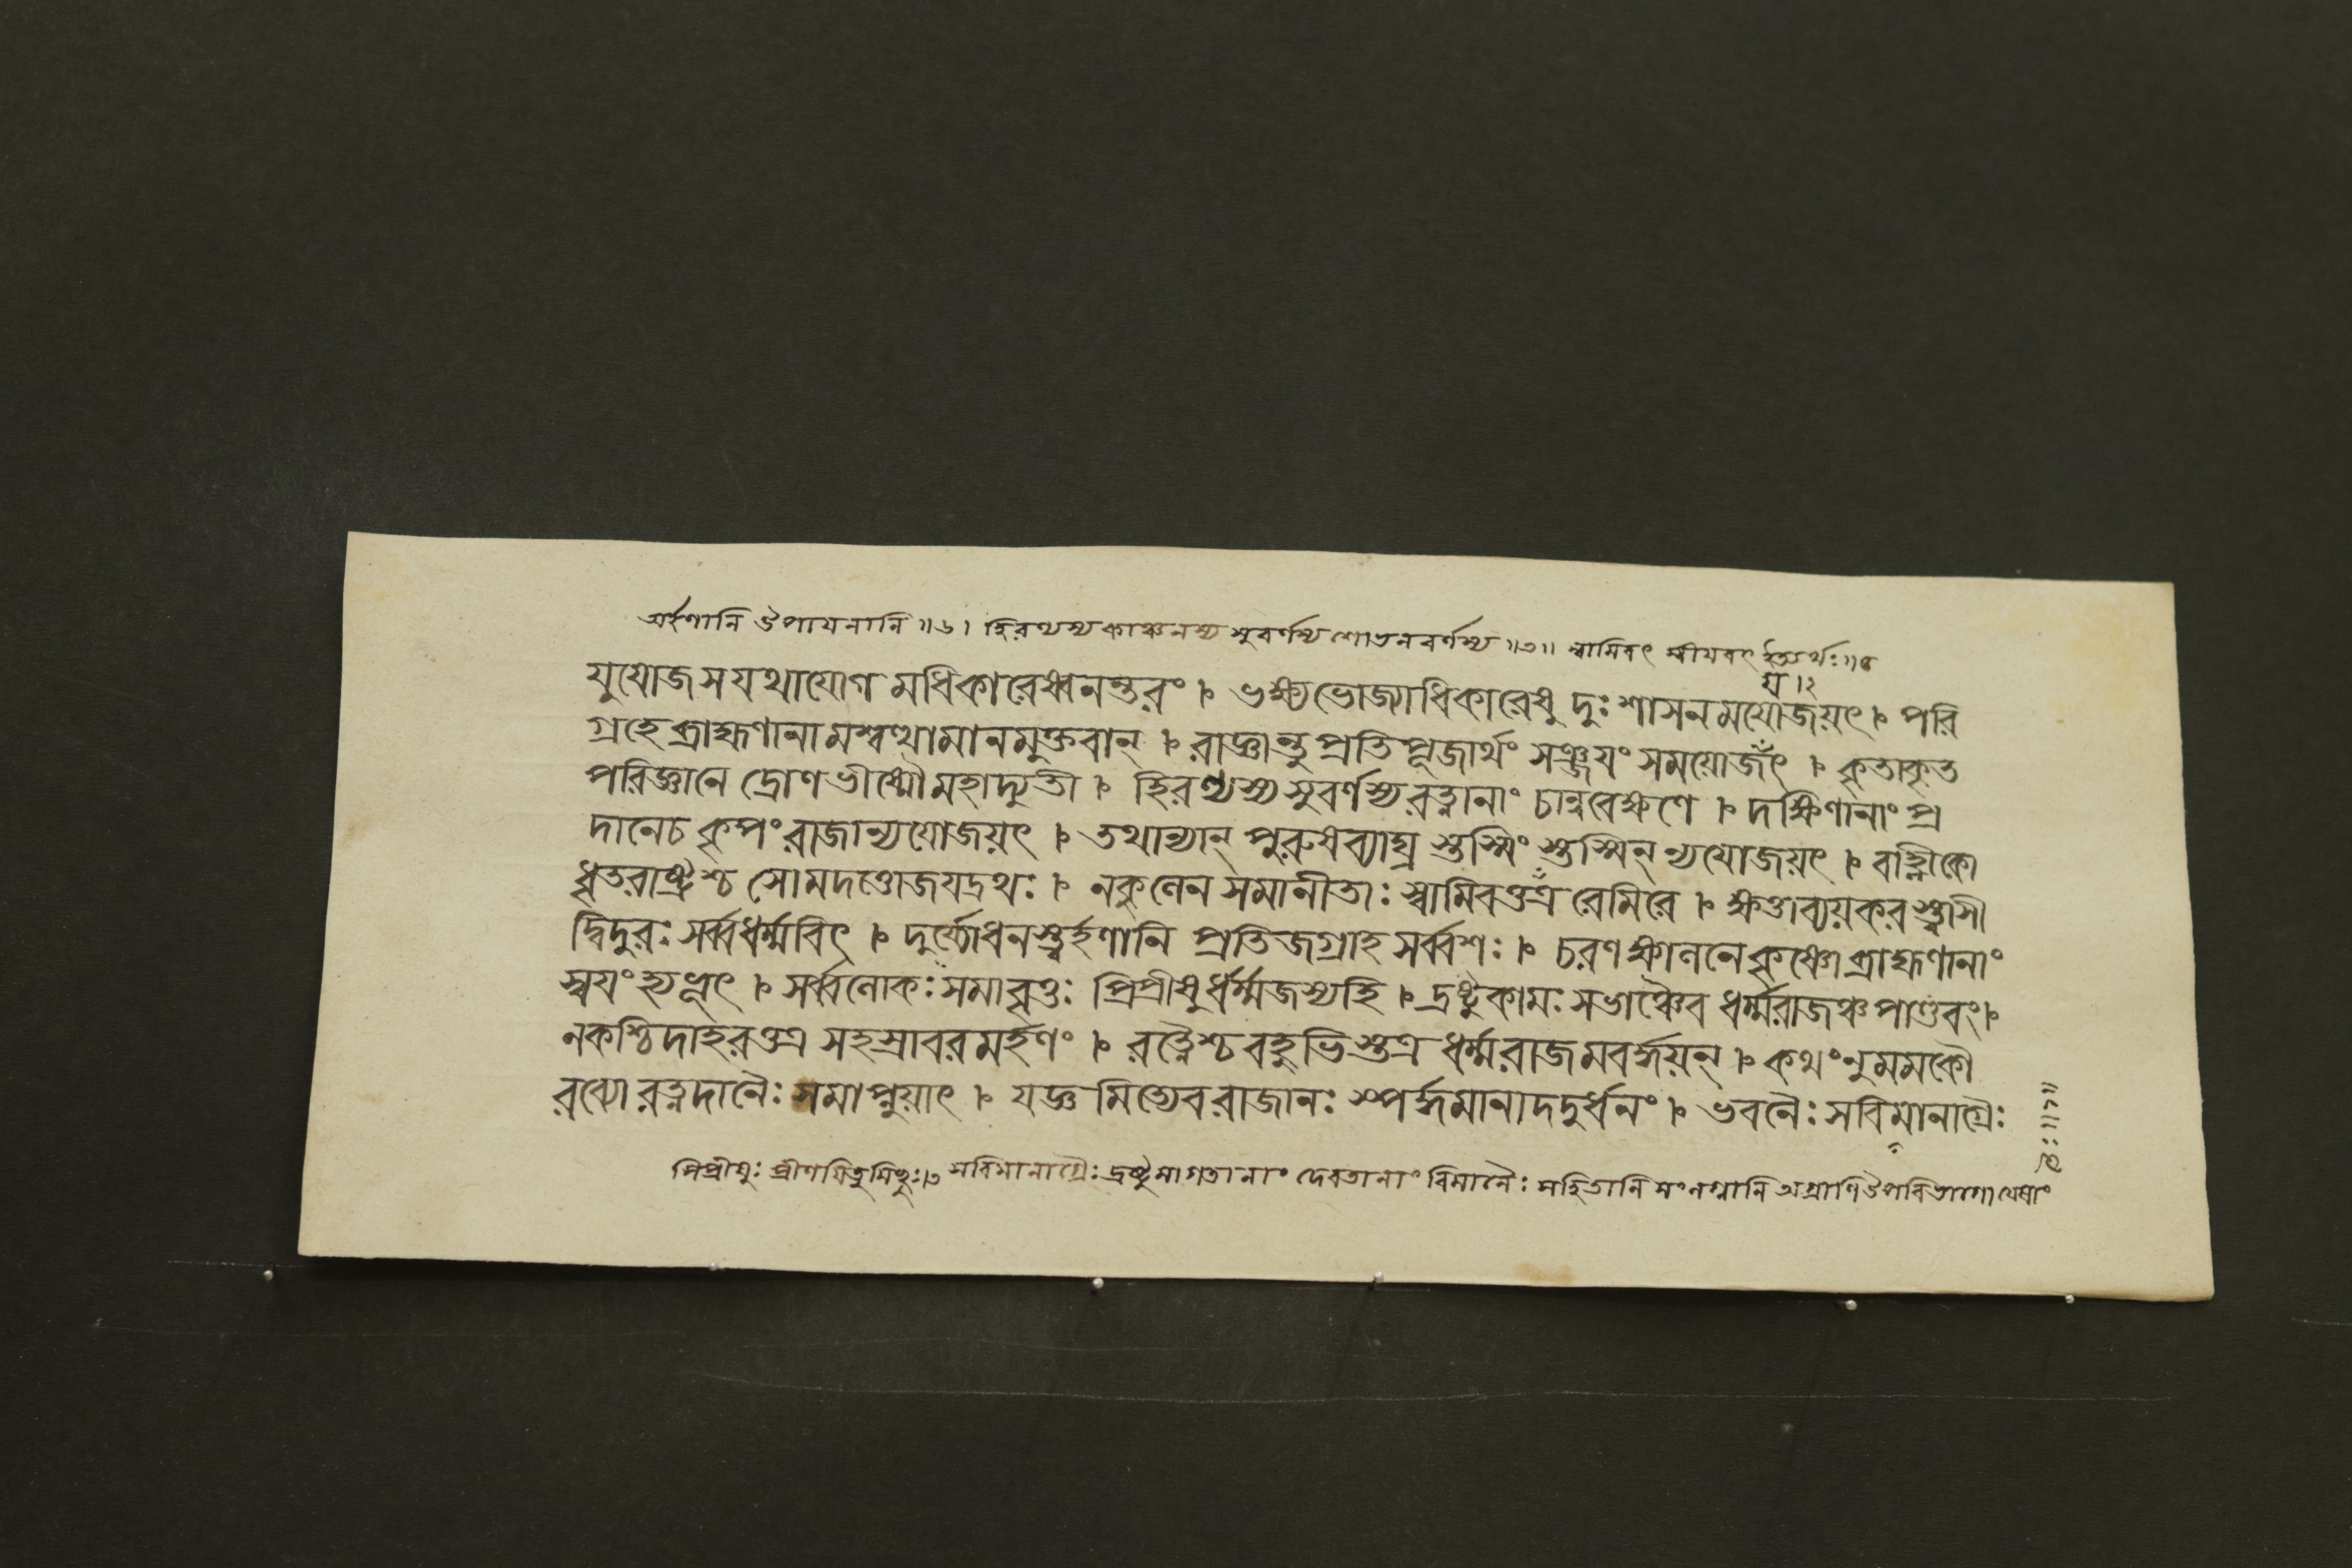 অর্হণানি উপায়নানি ॥৬। হিরণ্যস্য কাঞ্চনস্য সুবর্ণস্য শোভনবর্ণস্য ॥৩॥ স্বামিবৎ স্বীয়বৎ ইত্যর্থঃ॥৪
য় ।২
যুযোজ স যথাযোগ মধিকারেষ্বনন্তরং । ভক্ষ্যভোজ্যাধিকারেষু দুঃশাসনমযোজয়ৎ । পরি
গ্রহে ব্রাহ্মণানামশ্বত্থামানমুক্তবান্ । রাজ্ঞান্তু প্রতিপূজার্থং সঞ্জয়ং সময়োজঁৎ । কৃতাকৃত
পরিজ্ঞানে দ্রোণভীষ্মৌ মহাদ্যুতী । হিরণ্যস্য সুবর্ণস্য রত্নানাং চান্ববেক্ষণে । দক্ষিণানাং প্র
দানেচ কৃপং রাজান্যযোজয়ৎ । তথান্যান্ পুরুষব্যাঘ্র স্তস্মিং স্তস্মিন্ ন্যযোজয়ৎ । বাহ্লীকো
ধৃতরাষ্ট্রশ্চ সোমদত্তোজয়দ্রথঃ । নকুলেন সমানীতাঃ স্বামিবত্তত্র রেমিরে । ক্ষত্তাব্যয়করস্ত্বাসী
দ্বিদুরঃ সর্ব্বধর্ম্মবিৎ । দুর্য্যোধনস্ত্বর্হণানি প্রতিজগ্রাহ সর্ব্বশঃ । চরণক্ষালনে কৃষ্ণো ব্রাহ্মণানাং
স্বয়ং হ্যভূৎ । সর্ব্বলোকঃ সমাবৃত্তঃ প্রিপ্রীষুর্ধর্ম্মজস্যহি । দ্রষ্টুকামঃ সভাঞ্চৈব ধর্ম্মরাজঞ্চ পাণ্ডবং।
নকশ্চিদাহরত্তত্র সহস্রাবরমর্হণং । রত্নৈশ্চ বহুভিস্তত্র ধর্ম্মরাজমবর্দ্ধয়ন্ । কথংনু মমকৌ
রব্যো রত্নদানৈঃ সমাপ্নুয়াৎ । যজ্ঞমিত্যেব রাজানঃ স্পর্দ্ধমানাদদুর্ধনং । ভবনৈঃ সবিমানাগ্রৈঃ
পিপ্রীষুঃ প্রীণয়িতুমিচ্ছুঃ।৩ সবিমানাগ্রৈঃ দ্রষ্টুমাগতানাং দেবতানাং বিমানৈঃ সহিতানি সংলগ্নানি অগ্রাণি উপরিভাগা যেষাং
তৈঃ॥১॥